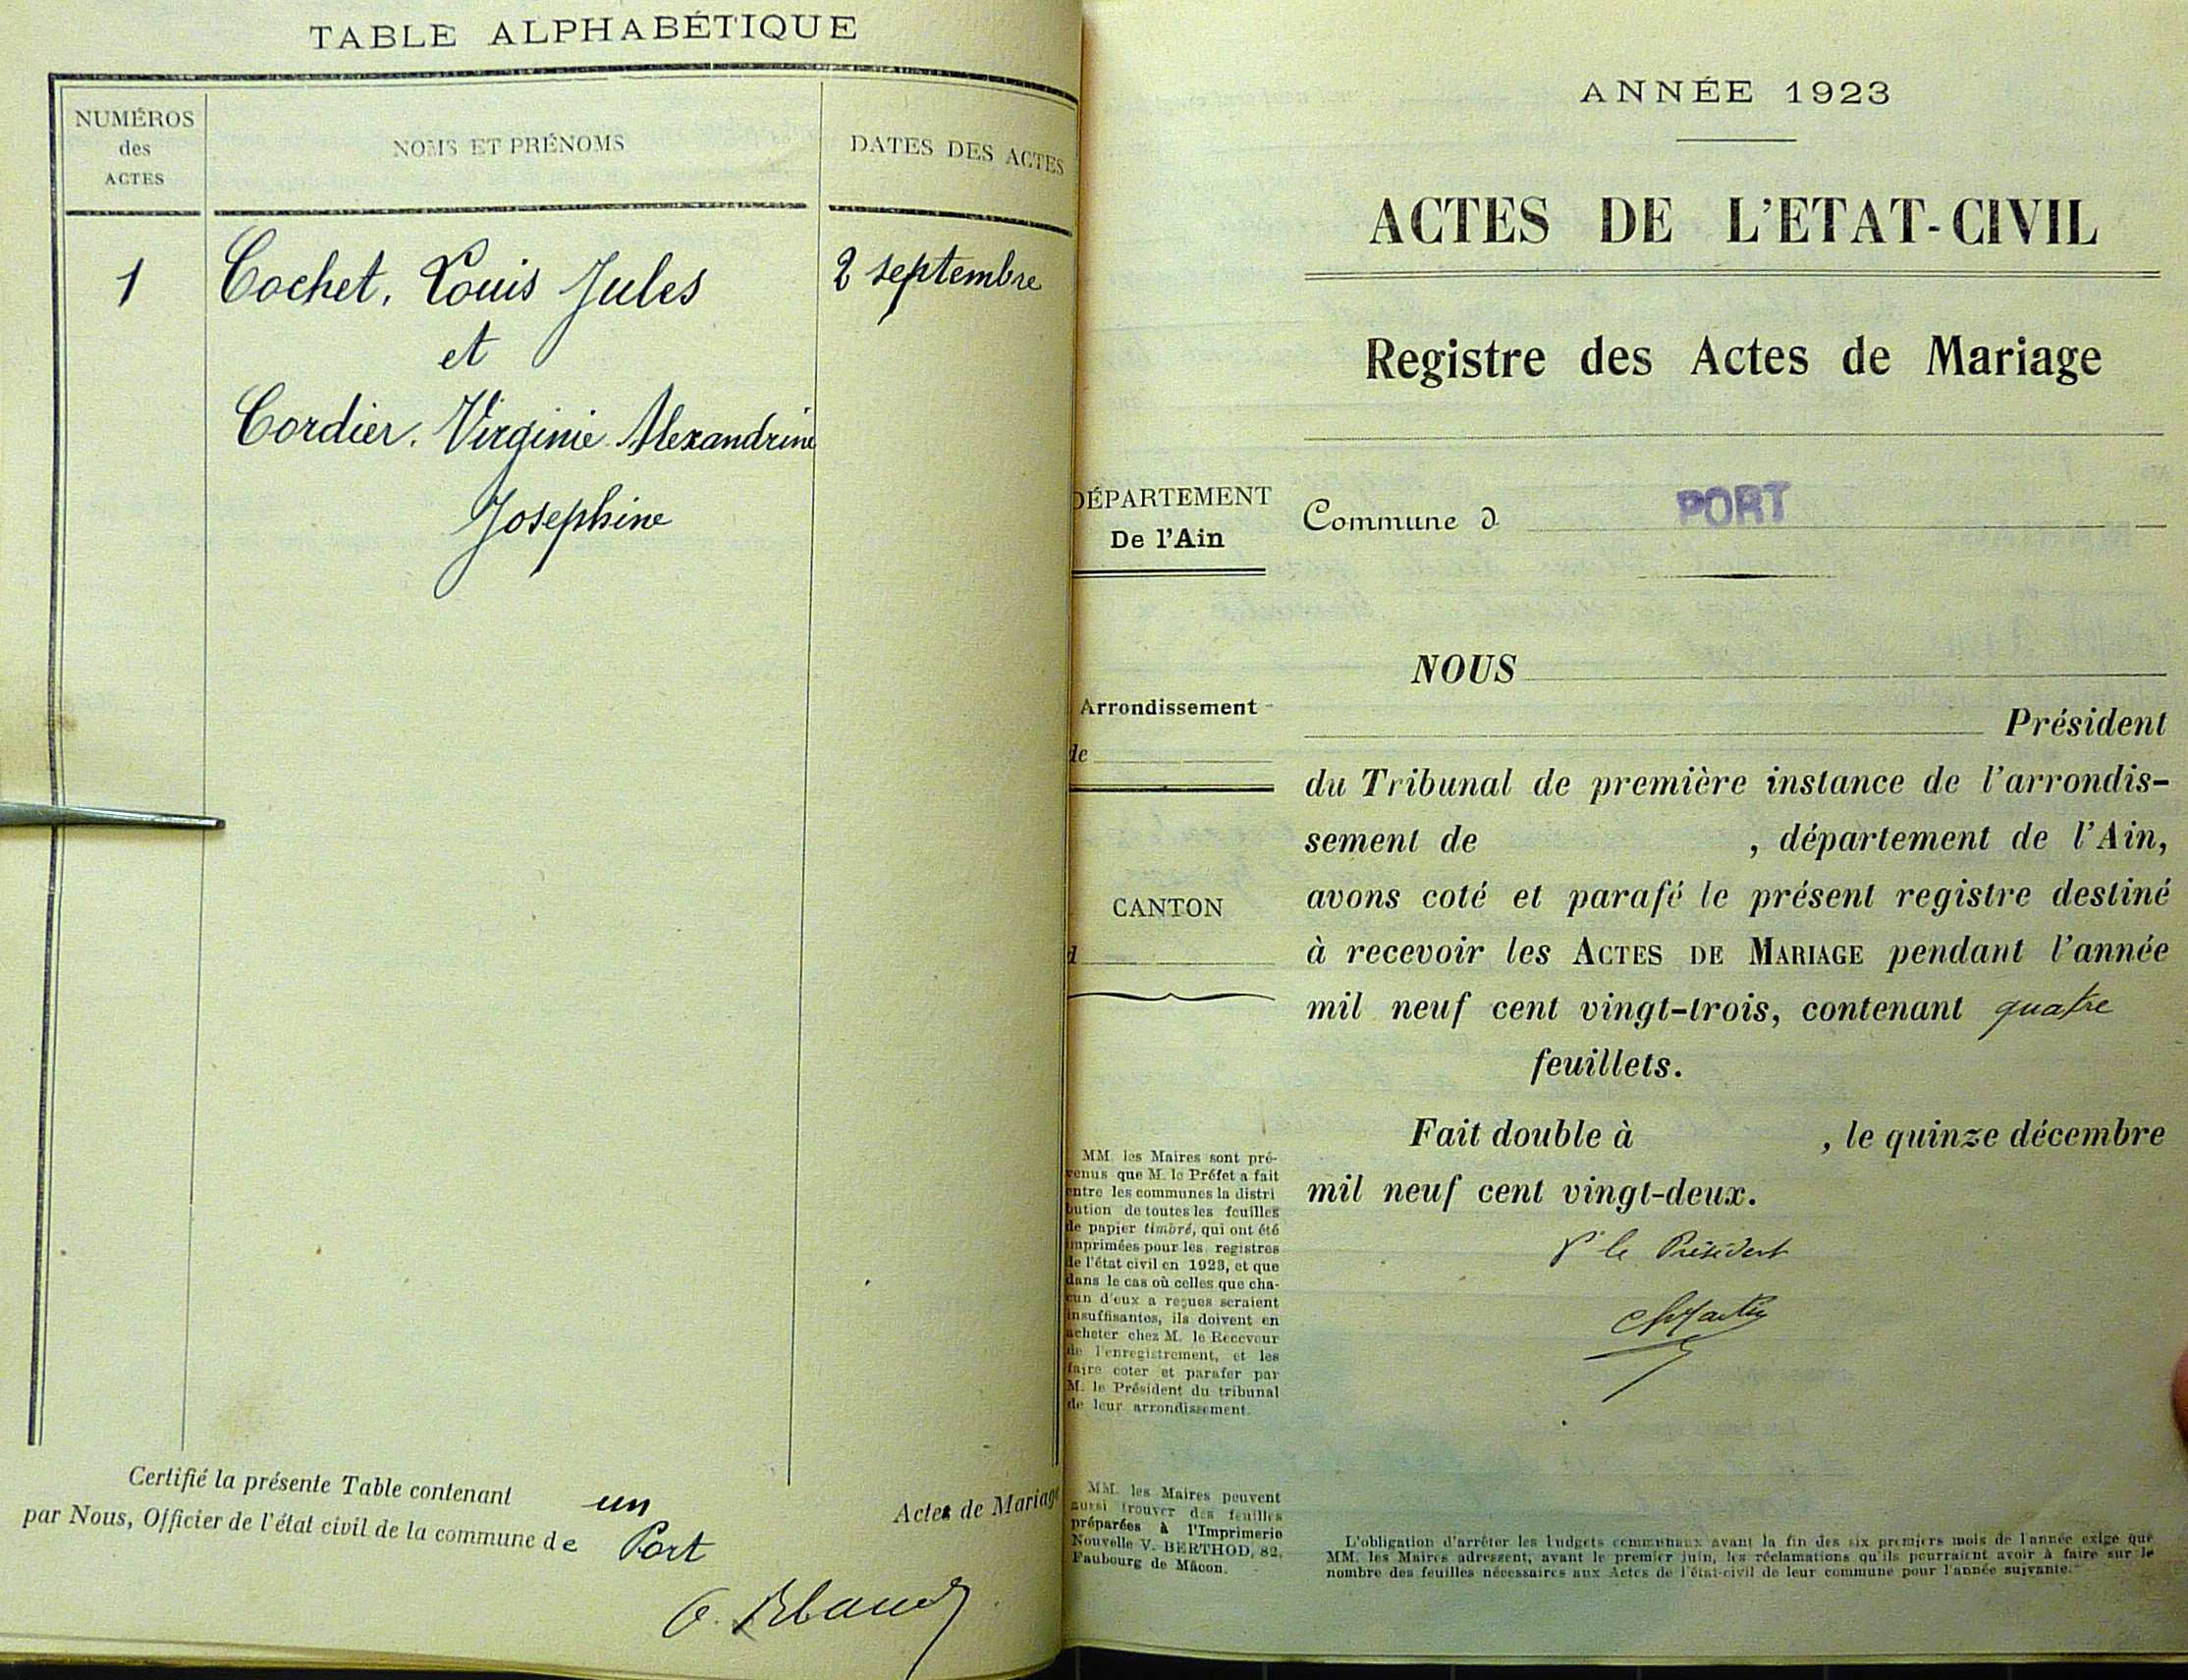 TABLE ALPHABÉTIQUE
NUMÉROS
des
ACTES
NOMS ET PRÉNOMS
DATES DES ACTES
1
Cochet, Louis Jules
2 septembre
et
Cordier, Virginie Alexandrine
Josephine
Certifié la présente Table contenant un Actes de Mariage
par Nous, Officier de l'état civil de la commune de Port
ANNÉE 1923
ACTES DE L'ETAT-CIVIL
Registre des Actes de Mariage
DÉPARTEMENT
De l'Ain
Arrondissement
de
CANTON
d
MM. les Maires sont pré-
venus que M. le Préfet a fait
entre les communes la distri
bution de toutes les feuilles
de papier timbré, qui ont été
imprimées pour les registres
de l'état civil en 1923, et que
dans le cas où celles que cha-
cun d'eux a reçues seraient
insuffisantes, ils doivent en
acheter chez M. le Receveur
de l'enregistrement, et les
faire coter et parafer par
M. le Président du tribunal
de leur arrondissement.
MM. les Maires peuvent
aussi trouver des feuilles
préparées à l'Imprimerie
Nouvelle V. BERTHOD, 82,
Faubourg de Mâcon.
Commune d PORT
NOUS
Président
du Tribunal de première instance de l'arrondis-
sement de , département de l'Ain,
avons coté et parafé le présent registre destiné
à recevoir les ACTES DE MARIAGE pendant l'année
mil neuf cent vingt-trois, contenant quatre
feuillets.
Fait double à , le quinze décembre
mil neuf cent vingt-deux.
Pr le Président
L'obligation d'arrêter les budgets communaux avant la fin des six premiers mois de l'année exige que
MM. les Maires adressent, avant le premier juin, les réclamations qu'ils pourraient avoir à faire sur le
nombre des feuilles nécessaires aux Actes de l'état-civil de leur commune pour l'année suivante.